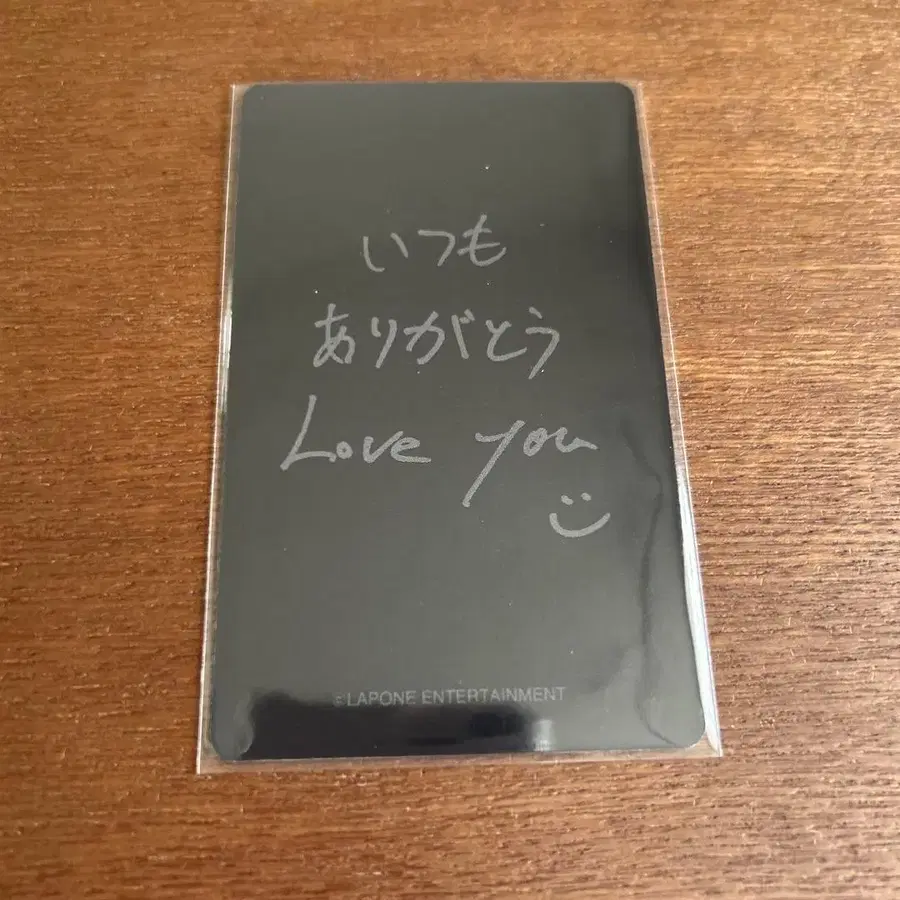 いつも
ありがとう
Love you
©LAPONE ENTERTAINMENT